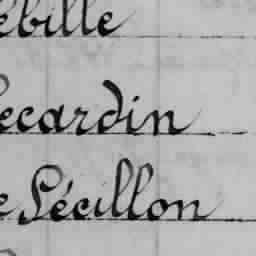 ebille
ecardin
e Sécillon